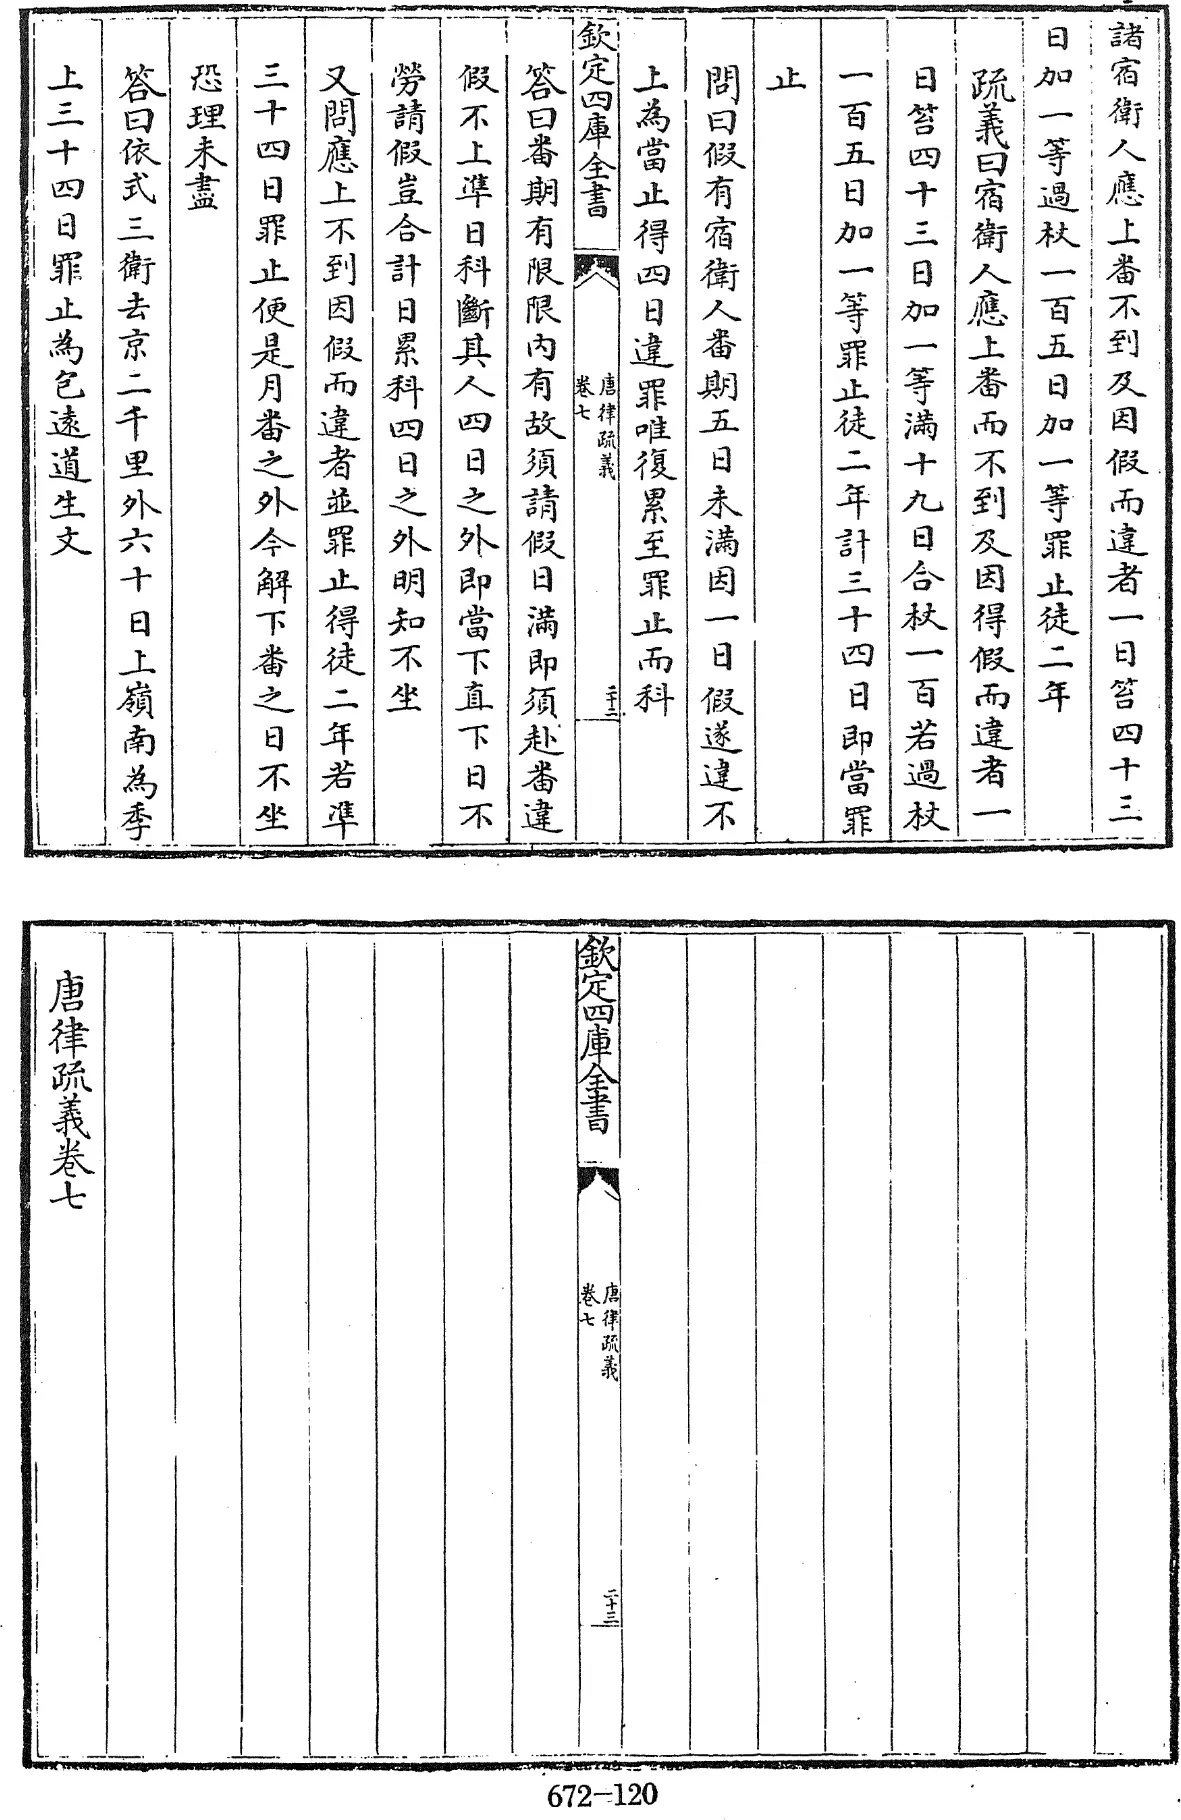 諸宿衛人應上番不到及因假而違者一日笞四十三
日加一等過杖一百五日加一等罪止徒二年
疏義曰宿衛人應上番而不到及因得假而違者一
日笞四十三日加一等滿十九日合杖一百若過杖
一百五日加一等罪止徒二年計三十四日即當罪
止
問曰假有宿衛人番期五日未滿因一日假遂違不
上為當止得四日違罪唯復累至罪止而科
欽定四庫全書
唐律疏義
卷七
二十二
答曰番期有限限內有故須請假日滿即須赴番違
假不上準日科斷其人四日之外即當下直下日不
勞請假豈合計日累科四日之外明知不坐
又問應上不到因假而違者並罪止得徒二年若準
三十四日罪止便是月番之外今解下番之日不坐
恐理未盡
答曰依式三衛去京二千里外六十日上嶺南為季
上三十四日罪止為包遠道生文
欽定四庫全書
唐律疏義
卷七
二十三
唐律疏義卷七
672-120